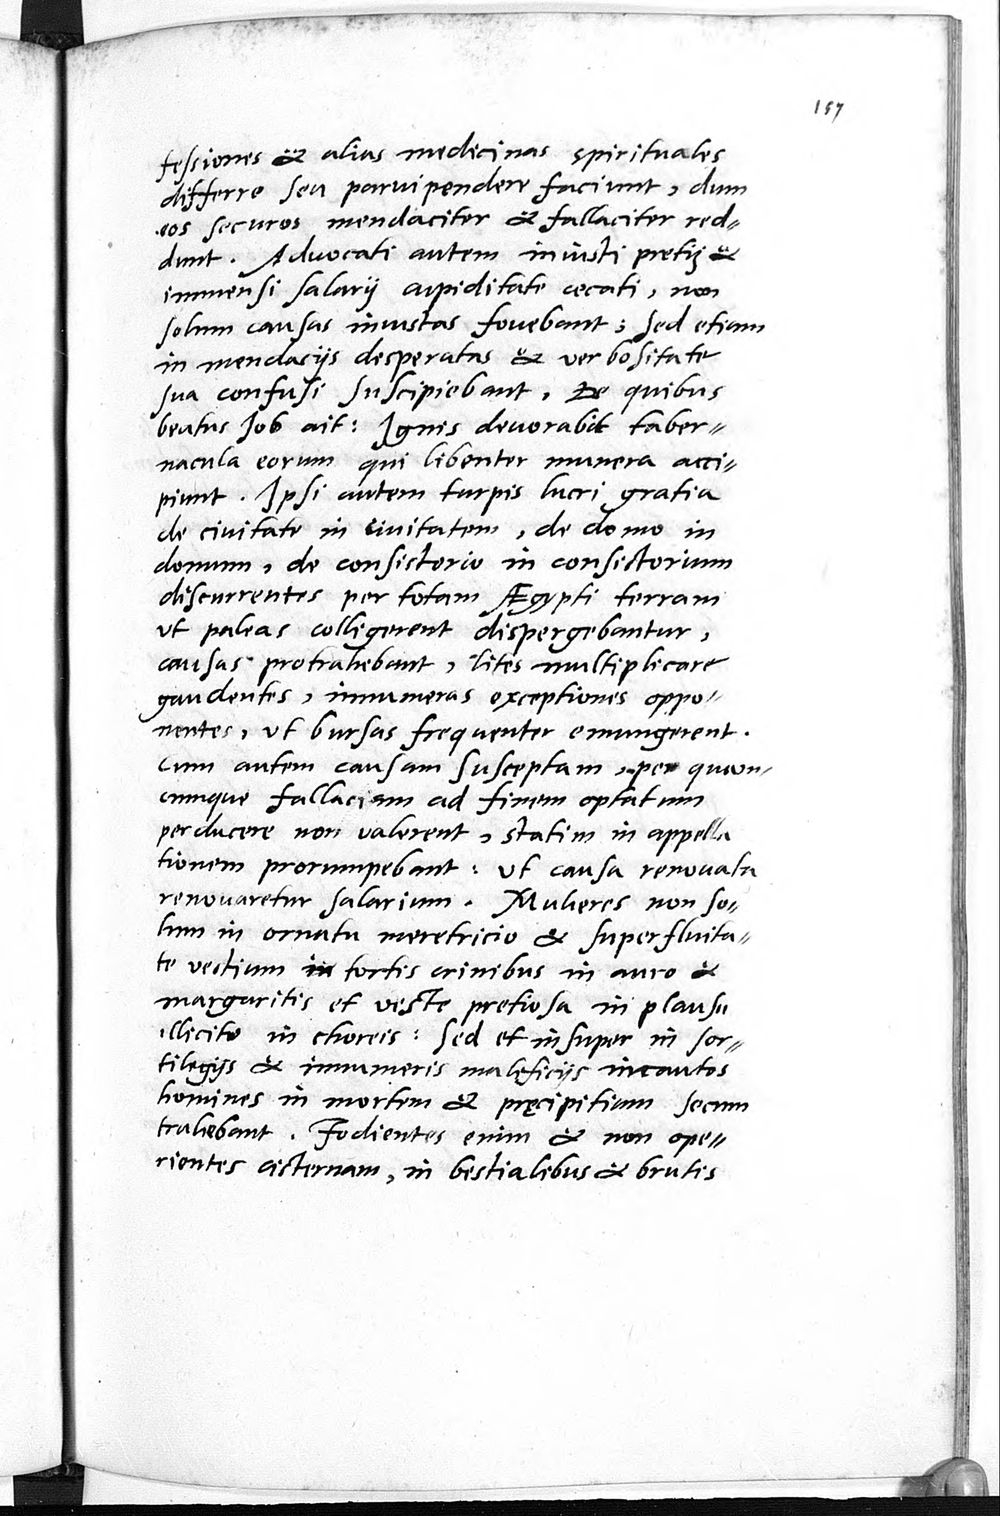 157
fessiones & alias medicinas spirituales
differre seu paruipendere faciunt, dum
eos securos mendaciter & fallaciter red„
dunt. Aduocati autem iniusti pretij &
immensi salarij cupiditate cecati, non
solum causas iniustas fouebant; sed etiam
in mendacijs desperatas & verbositate
sua confusi suscipiebant. De quibus
beatus Job ait: Ignis deuorabit taber„
nacula eorum qui libenter munera acci„
piunt. Ipsi autem turpis lucri gratia
de ciuitate in ciuitatem, de domo in
domum, de consistorio in consistorium
discurrentes per totam Ægypti terram
ut paleas colligerent dispergebantur,
causas protrahebant, lites multiplicare
gaudentes, innumeras exceptiones oppo„
nentes, ut bursas frequenter emungerent.
Cum autem causam susceptam, per quam„
cunque fallaciam ad finem optatum
perducere non valerent, statim in appella
tionem prorumpebant: ut causa renouata
renouaretur salarium. Mulieres non so„
lum in ornatu meretricio & superfluita„
te vestium in tortis crinibus in auro &
margaritis et veste pretiosa in plausu
illicito in choreis: sed et insuper in sor„
tilegijs & innumeris maleficijs incautos
homines in mortem & pręcipitium secum
trahebant. Fodientes enim & non ope„
rientes cisternam, in bestialibus & brutis